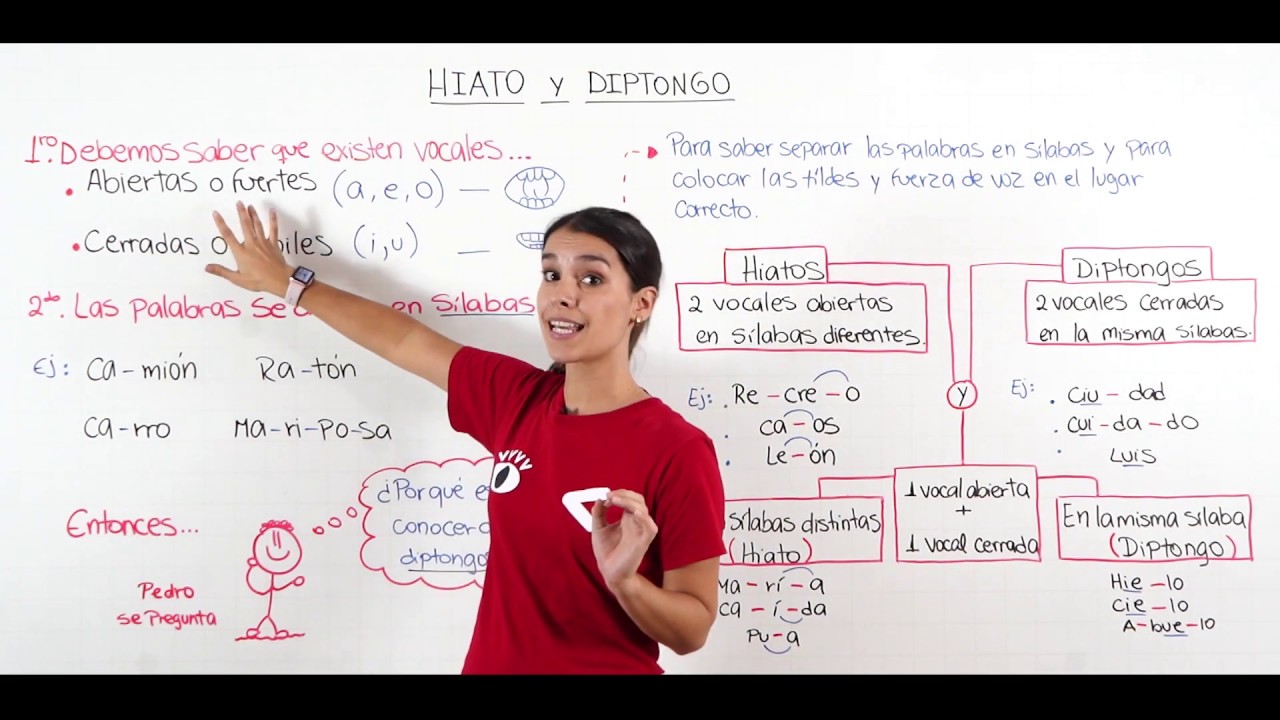 HIATO y DIPTONGO
1ro. Debemos saber que existen vocales...
• Abiertas o fuertes (a, e, o) —
• Cerradas o (i, u) —
2do. Las palabras se en Sílabas
Ej: Ca - mión Ra - tón
Ca - rro Ma - ri - po - sa
Entonces...
Pedro
se Pregunta
¿Por qué
conocer
diptongo
Para saber separar las palabras en sílabas y para
colocar las tíldes y fuerza de voz en el lugar
correcto.
Hiatos
2 vocales abiertas
en sílabas diferentes.
Ej: Re - cre - o
• ca - os
• Le - ón
y
Diptongos
2 vocales cerradas
en la misma sílabas.
Ej: • Ciu - dad
• cui - da - do
• Luis
1 vocal abierta
+
1 vocal cerrada
sílabas distintas
(Hiato)
Ma - rí - a
Ca - í - da
Pu - a
En la misma sílaba
(Diptongo)
Hie - lo
Cie - lo
A - bue - lo